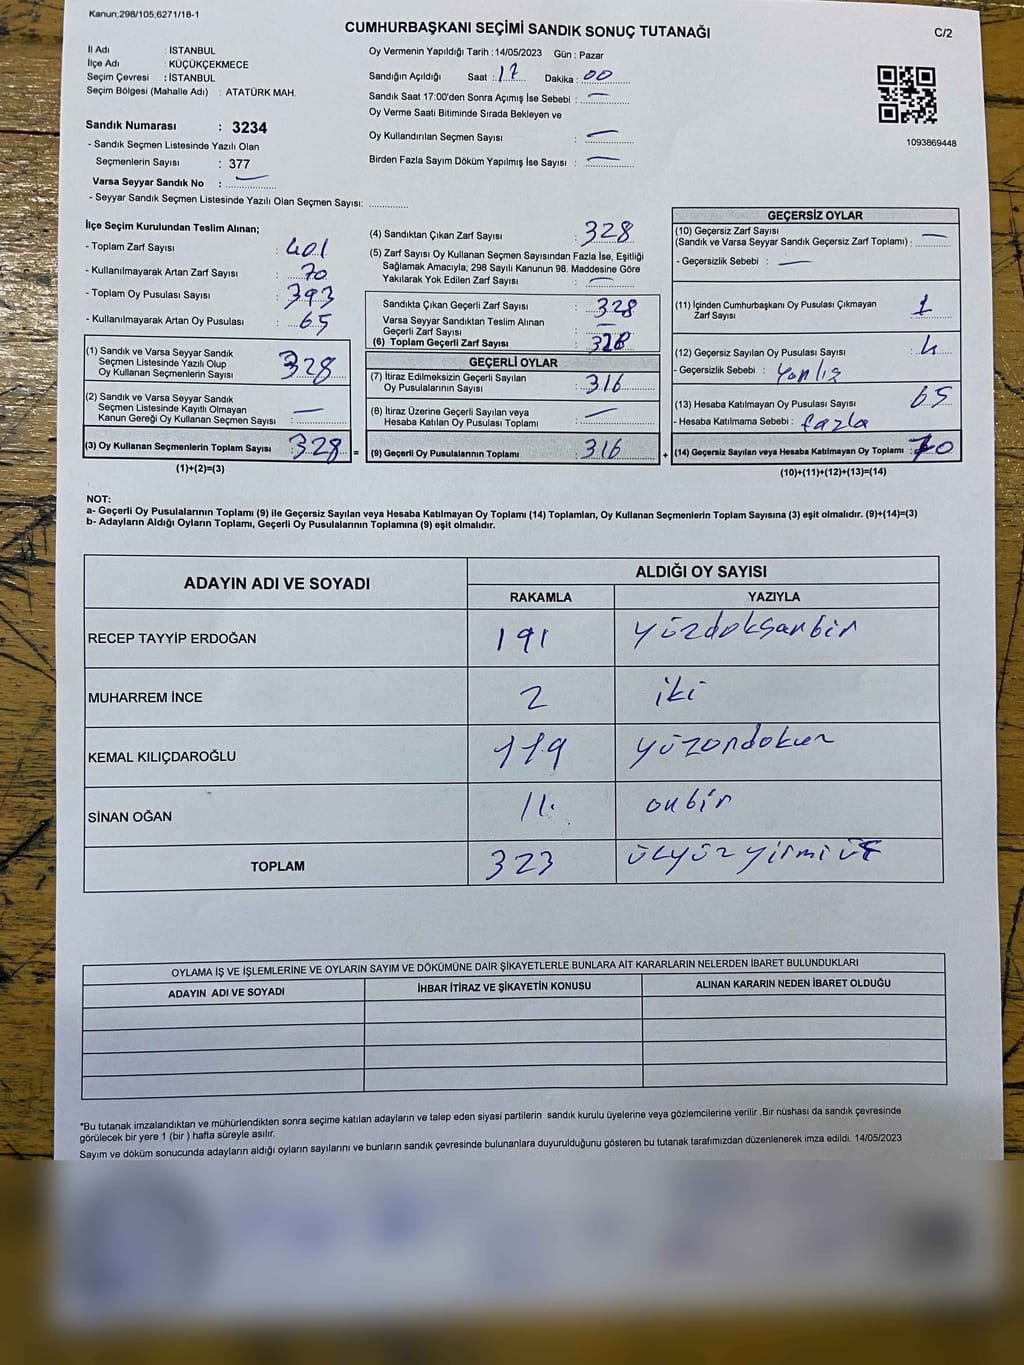 Kanun;298/105;6271/18-1
CUMHURBAŞKANI SEÇİMİ SANDIK SONUÇ TUTANAĞI
C/2
İl Adı : İSTANBUL
İlçe Adı : KÜÇÜKÇEKMECE
Seçim Çevresi : İSTANBUL
Seçim Bölgesi (Mahalle Adı) : ATATÜRK MAH.
Oy Vermenin Yapıldığı Tarih : 14/05/2023 Gün : Pazar
Sandığın Açıldığı Saat : 17 Dakika : 00
Sandık Saat 17:00'den Sonra Açımış İse Sebebi : —
Oy Verme Saati Bitiminde Sırada Bekleyen ve
Oy Kullandırılan Seçmen Sayısı : —
Birden Fazla Sayım Döküm Yapılmış İse Sayısı : —
1093869448
Sandık Numarası : 3234
- Sandık Seçmen Listesinde Yazılı Olan
Seçmenlerin Sayısı : 377
Varsa Seyyar Sandık No : —
- Seyyar Sandık Seçmen Listesinde Yazılı Olan Seçmen Sayısı: ............
İlçe Seçim Kurulundan Teslim Alınan;
- Toplam Zarf Sayısı : 401
- Kullanılmayarak Artan Zarf Sayısı : 70
- Toplam Oy Pusulası Sayısı : 393
- Kullanılmayarak Artan Oy Pusulası : 65
(1) Sandık ve Varsa Seyyar Sandık
Seçmen Listesinde Yazılı Olup
Oy Kullanan Seçmenlerin Sayısı : 328
(2) Sandık ve Varsa Seyyar Sandık
Seçmen Listesinde Kayıtlı Olmayan
Kanun Gereği Oy Kullanan Seçmen Sayısı : —
(3) Oy Kullanan Seçmenlerin Toplam Sayısı : 328 =
(1)+(2)=(3)
(4) Sandıktan Çıkan Zarf Sayısı : 328
(5) Zarf Sayısı Oy Kullanan Seçmen Sayısından Fazla İse, Eşitliği
Sağlamak Amacıyla; 298 Sayılı Kanunun 98. Maddesine Göre
Yakılarak Yok Edilen Zarf Sayısı : —
Sandıkta Çıkan Geçerli Zarf Sayısı : 328
Varsa Seyyar Sandıktan Teslim Alınan
Geçerli Zarf Sayısı : —
(6) Toplam Geçerli Zarf Sayısı : 328
GEÇERLİ OYLAR
(7) İtiraz Edilmeksizin Geçerli Sayılan
Oy Pusulalarının Sayısı : 316
(8) İtiraz Üzerine Geçerli Sayılan veya
Hesaba Katılan Oy Pusulası Toplamı : —
(9) Geçerli Oy Pusulalarının Toplamı : 316 +
GEÇERSİZ OYLAR
(10) Geçersiz Zarf Sayısı
(Sandık ve Varsa Seyyar Sandık Geçersiz Zarf Toplamı) : —
- Geçersizlik Sebebi : —
(11) İçinden Cumhurbaşkanı Oy Pusulası Çıkmayan
Zarf Sayısı : 1
(12) Geçersiz Sayılan Oy Pusulası Sayısı : 4
- Geçersizlik Sebebi : Yanlış
(13) Hesaba Katılmayan Oy Pusulası Sayısı : 65
- Hesaba Katılmama Sebebi : fazla
(14) Geçersiz Sayılan veya Hesaba Katılmayan Oy Toplamı : 70
(10)+(11)+(12)+(13)=(14)
NOT:
a- Geçerli Oy Pusulalarının Toplamı (9) ile Geçersiz Sayılan veya Hesaba Katılmayan Oy Toplamı (14) Toplamları, Oy Kullanan Seçmenlerin Toplam Sayısına (3) eşit olmalıdır. (9)+(14)=(3)
b- Adayların Aldığı Oyların Toplamı, Geçerli Oy Pusulalarının Toplamına (9) eşit olmalıdır.
ADAYIN ADI VE SOYADI
ALDIĞI OY SAYISI
RAKAMLA YAZIYLA
RECEP TAYYİP ERDOĞAN 191 yüzdoksanbir
MUHARREM İNCE 2 iki
KEMAL KILIÇDAROĞLU 119 yüzondokuz
SİNAN OĞAN 11 onbir
TOPLAM 323 üçyüzyirmiüç
OYLAMA İŞ VE İŞLEMLERİNE VE OYLARIN SAYIM VE DÖKÜMÜNE DAİR ŞİKAYETLERLE BUNLARA AİT KARARLARIN NELERDEN İBARET BULUNDUKLARI
ADAYIN ADI VE SOYADI İHBAR İTİRAZ VE ŞİKAYETİN KONUSU ALINAN KARARIN NEDEN İBARET OLDUĞU
*Bu tutanak imzalandıktan ve mühürlendikten sonra seçime katılan adayların ve talep eden siyasi partilerin sandık kurulu üyelerine veya gözlemcilerine verilir .Bir nüshası da sandık çevresinde
görülecek bir yere 1 (bir ) hafta süreyle asılır.
Sayım ve döküm sonucunda adayların aldığı oyların sayılarını ve bunların sandık çevresinde bulunanlara duyurulduğunu gösteren bu tutanak tarafımızdan düzenlenerek imza edildi. 14/05/2023